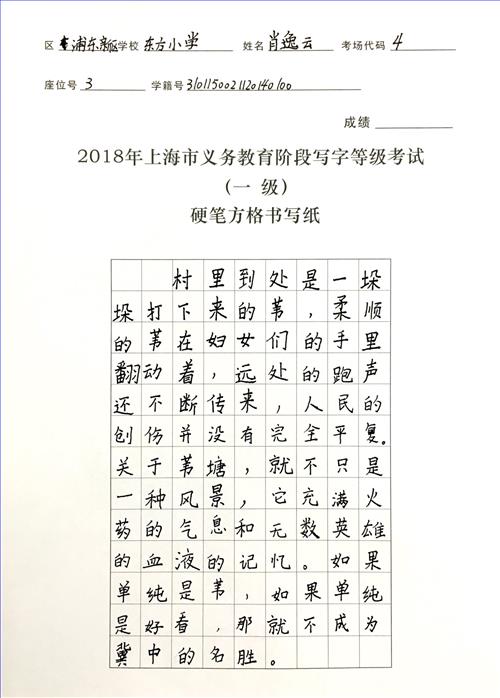 区 浦东新区 学校 东方小学 姓名 肖逸云 考场代码 4
座位号 3 学籍号 3101150021120140100
成绩
2018年上海市义务教育阶段写字等级考试
(一 级)
硬笔方格书写纸
村里到处是一垛
垛打下来的苇,柔顺
的苇在妇女们的手里
翻动着,远处的跑声
还不断传来,人民的
创伤并没有完全平复。
关于苇塘,就不只是
一种风景,它充满火
药的气息和无数英雄
的血液的记忆。如果
单纯是苇,如果单纯
是好看,那就不成为
冀中的名胜。